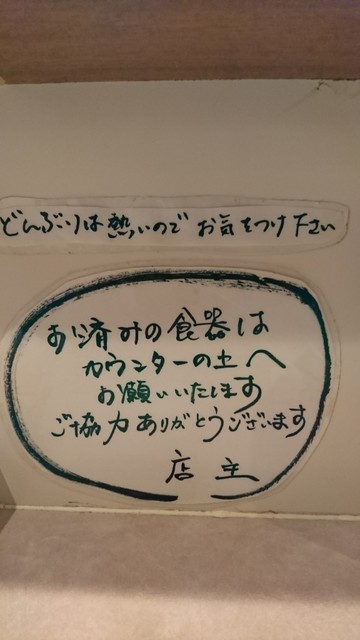 どんぶりは熱いので お気をつけ下さい
お済みの食器は
カウンターの上へ
お願いいたします
ご協力ありがとうございます
店主